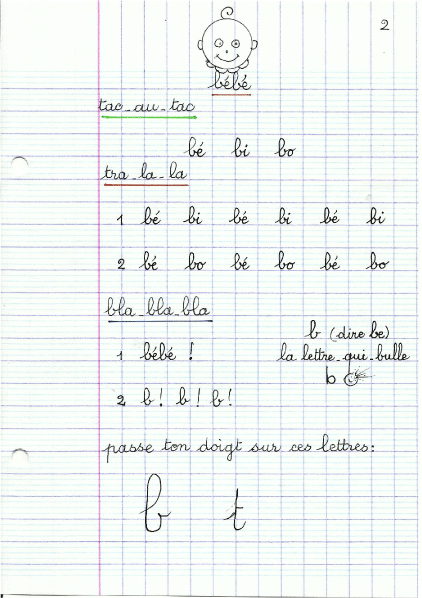 2
bébé
tac_au_tac
bé bi bo
tra_la_la
1 bé bi bé bi bé bi
2 bé bo bé bo bé bo
bla_bla_bla
b (dire be)
1 bébé !
la lettre_qui_bulle
b
2 b! b! b!
passe ton doigt sur ces lettres:
b t